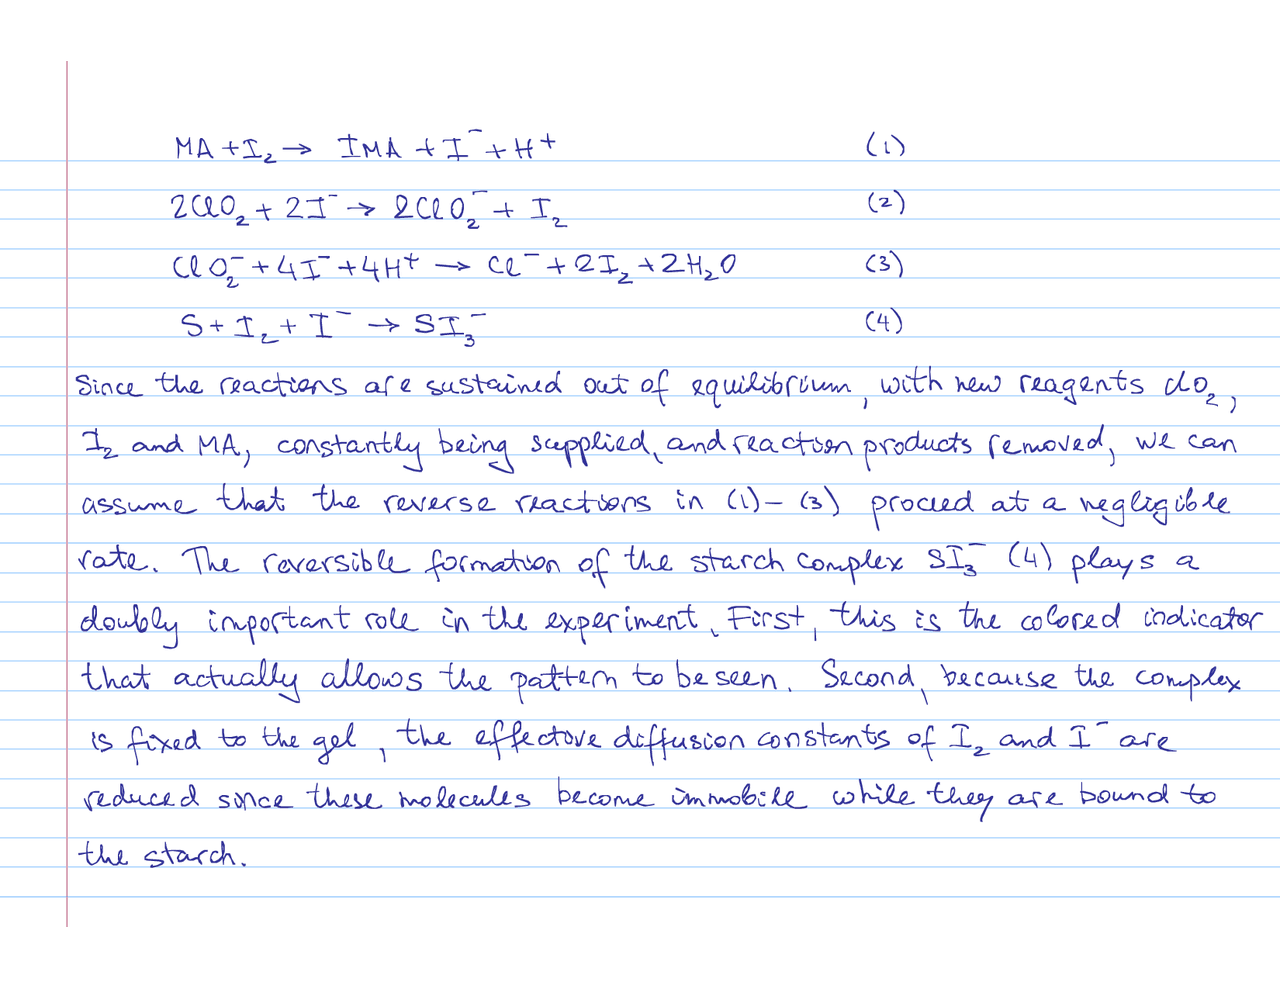 MA + I₂ → IMA + I⁻ + H⁺ (1)
2ClO₂ + 2I⁻ → 2ClO₂⁻ + I₂ (2)
ClO₂⁻ + 4I⁻ + 4H⁺ → Cl⁻ + 2I₂ + 2H₂O (3)
S + I₂ + I⁻ → SI₃⁻ (4)
Since the reactions are sustained out of equilibrium, with new reagents ClO₂,
I₂ and MA, constantly being supplied, and reaction products removed, we can
assume that the reverse reactions in (1) – (3) proceed at a negligible
rate. The reversible formation of the starch complex SI₃⁻ (4) plays a
doubly important role in the experiment. First, this is the colored indicator
that actually allows the pattern to be seen. Second, because the complex
is fixed to the gel, the effective diffusion constants of I₂ and I⁻ are
reduced since these molecules become immobile while they are bound to
the starch.